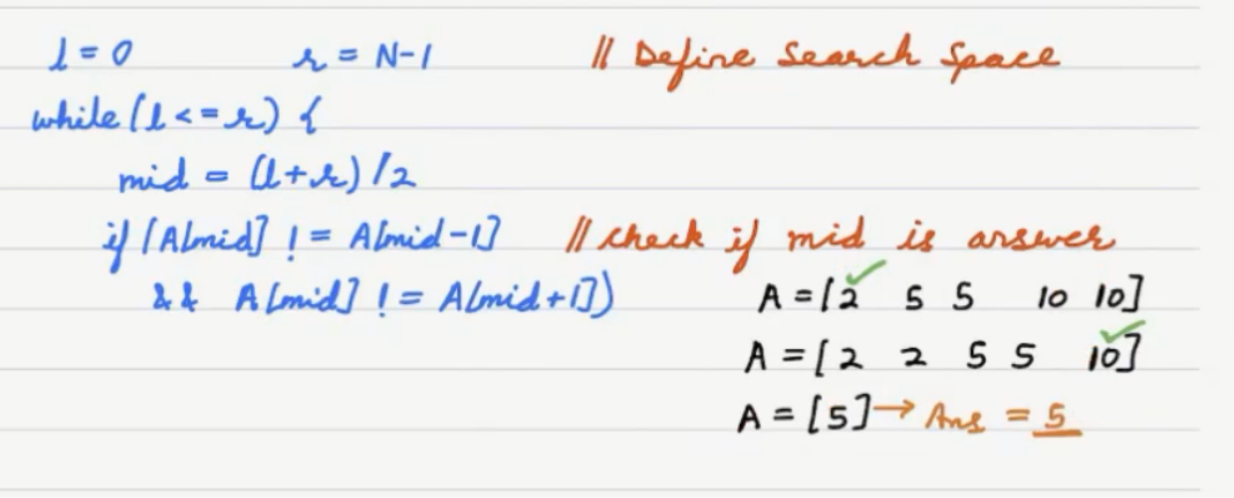 l = 0 r = N-1 // Define Search Space
while (l <= r) {
mid = (l+r) /2
if (A[mid] != A[mid-1] // check if mid is answer
&& A[mid] != A[mid+1])
A = [2 5 5 10 10]
A = [2 2 5 5 10]
A = [5] → Ans = 5